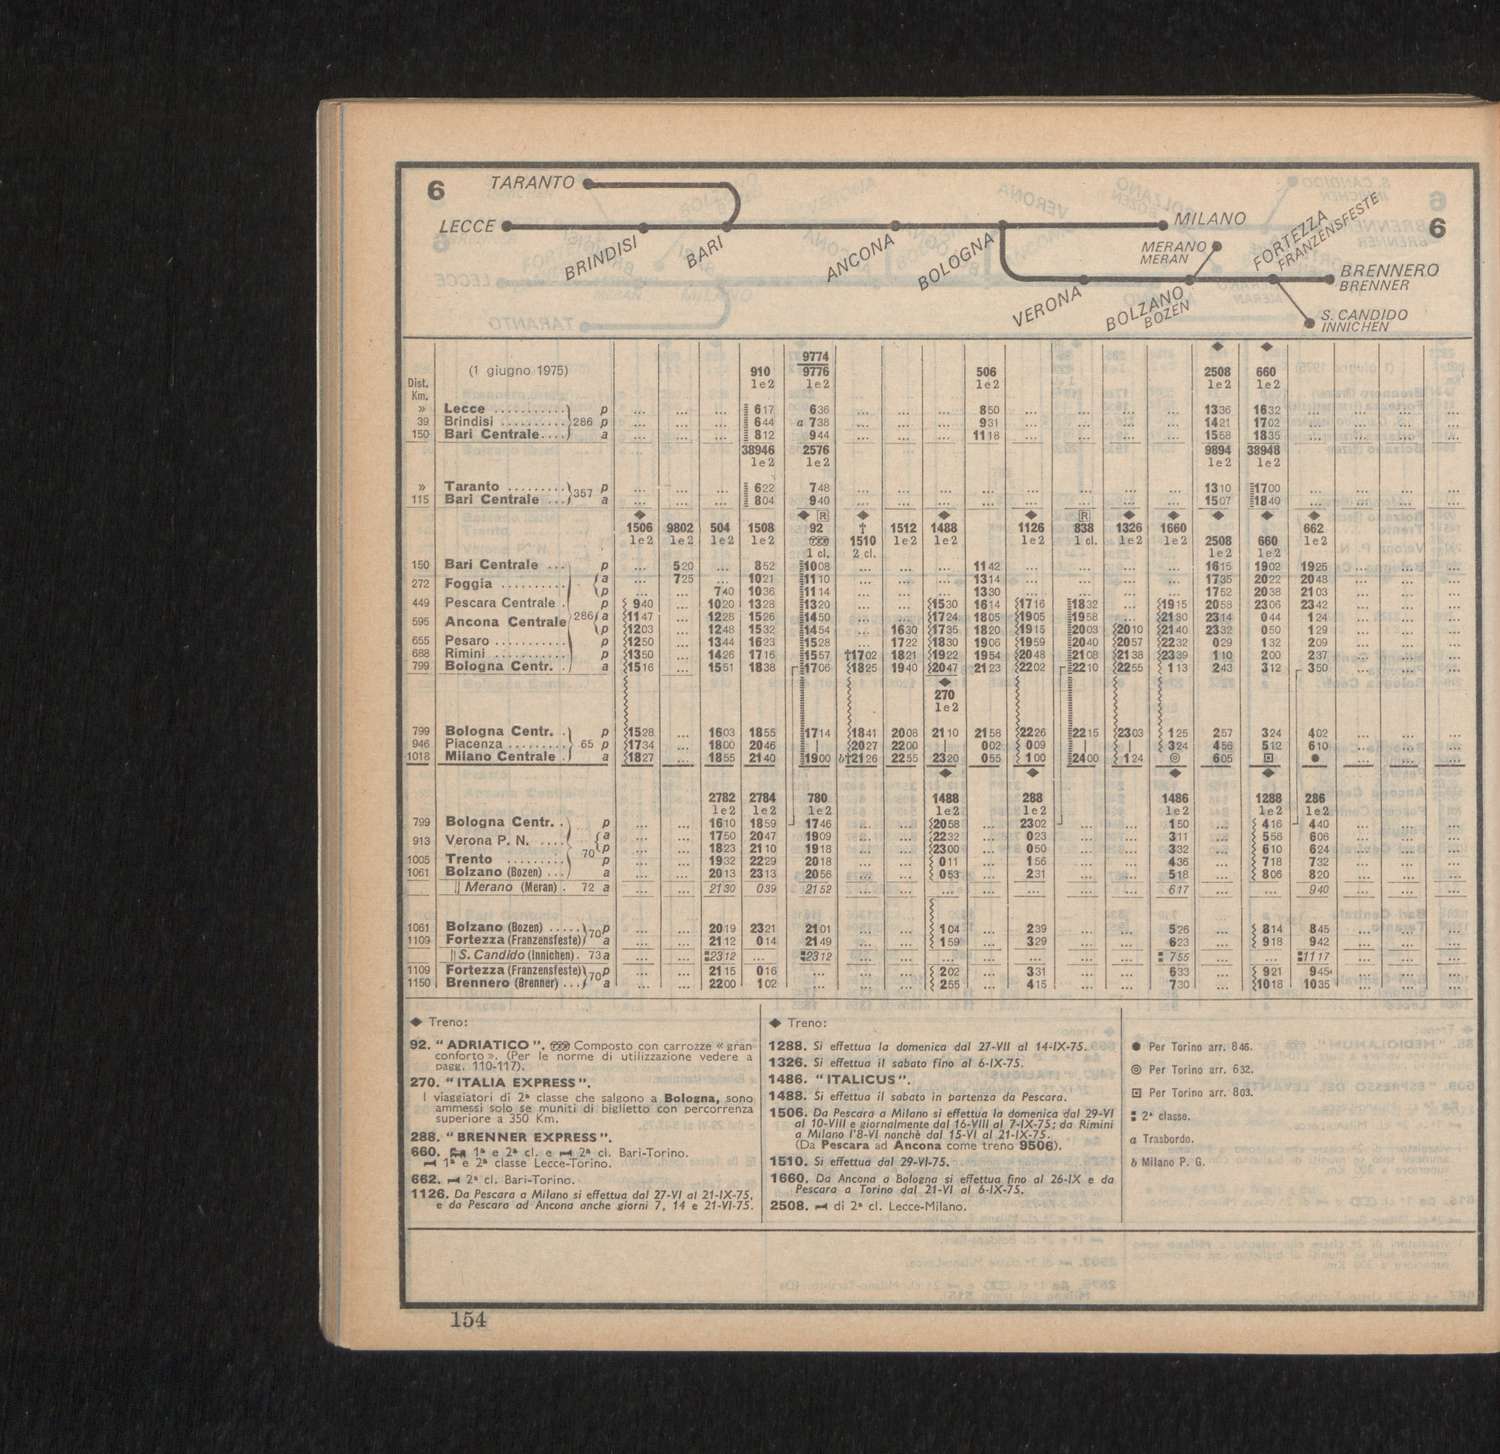 6
TARANTO
LECCE
BRINDISI
BARI
ANCONA
BOLOGNA
MILANO
MERANO
MERAN
VERONA
BOLZANO
BOZEN
FORTEZZA
FRANZENSFESTE
BRENNERO
BRENNER
S. CANDIDO
INNICHEN
6
9774
(1 giugno 1975) 910 9776 506 2508 660
Dist. Km. 1e2 1e2 1e2 1e2 1e2
» Lecce 286 p ... ... ... 617 636 ... ... ... 850 ... ... ... ... 1336 1632 ... ... ... ...
39 Brindisi p ... ... ... 644 a 738 ... ... ... 931 ... ... ... ... 1421 1702 ... ... ... ...
150 Bari Centrale a ... ... ... 812 944 ... ... ... 1118 ... ... ... ... 1558 1835 ... ... ... ...
38946 2576 9894 38948
1e2 1e2 1e2 1e2
» Taranto 357 p ... ... ... 622 748 ... ... ... ... ... ... ... ... 1310 1700 ... ... ... ...
115 Bari Centrale a ... ... ... 804 940 ... ... ... ... ... ... ... ... 1507 1849 ... ... ... ...
1506 9802 504 1508 92 † 1512 1488 1126 838 1326 1660 662
1e2 1e2 1e2 1e2 1510 1e2 1e2 1e2 1 cl. 1e2 1e2 2508 660 1e2
1 cl. 2 cl. 1e2 1e2
150 Bari Centrale p ... 520 ... 852 1008 ... ... ... 1142 ... ... ... ... 1615 1902 1925 ... ... ...
272 Foggia a ... 725 ... 1021 1110 ... ... ... 1314 ... ... ... ... 1735 2022 2048 ... ... ...
p ... ... 740 1036 1114 ... ... ... 1330 ... ... ... ... 1752 2038 2103 ... ... ...
449 Pescara Centrale 286 p 940 ... 1020 1328 1320 ... ... 1530 1614 1716 1832 ... 1915 2058 2306 2342 ... ... ...
595 Ancona Centrale a 1147 ... 1228 1526 1450 ... ... 1724 1805 1905 1958 ... 2130 2314 044 124 ... ... ...
p 1203 ... 1248 1532 1454 ... 1630 1735 1820 1915 2003 2010 2140 2332 050 129 ... ... ...
655 Pesaro p 1250 ... 1344 1623 1528 ... 1722 1830 1906 1959 2040 2057 2232 029 132 209 ... ... ...
688 Rimini p 1350 ... 1426 1716 1557 †1702 1821 1922 1954 2048 2108 2138 2339 110 200 237 ... ... ...
799 Bologna Centr. a 1516 ... 1551 1838 1706 1825 1940 2047 2123 2202 2210 2255 113 243 312 350 ... ... ...
270
1e2
799 Bologna Centr. 65 p 1528 ... 1603 1855 1714 1841 2008 2110 2158 2226 2215 2303 125 257 324 402 ... ... ...
946 Piacenza 1734 ... 1800 2046 | 2027 2200 | 002 009 | | 324 456 512 610 ... ... ...
1018 Milano Centrale a 1827 ... 1855 2140 1900 b†2126 2255 2320 055 100 2400 124 ◎ 605 ⊡ ● ... ... ...
2782 2784 780 1488 288 1486 1288 286
1e2 1e2 1e2 1e2 1e2 1e2 1e2 1e2
799 Bologna Centr. 70 p ... ... 1610 1859 1746 ... ... 2058 ... 2302 ... ... 150 ... 416 440 ... ... ...
913 Verona P. N. a ... ... 1750 2047 1909 ... ... 2232 ... 023 ... ... 311 ... 556 606 ... ... ...
p ... ... 1823 2110 1918 ... ... 2300 ... 050 ... ... 332 ... 610 624 ... ... ...
1005 Trento p ... ... 1932 2229 2018 ... ... 011 ... 156 ... ... 436 ... 718 732 ... ... ...
1061 Bolzano (Bozen) a ... ... 2013 2313 2056 ... ... 053 ... 231 ... ... 518 ... 806 820 ... ... ...
Merano (Meran) . 72 a ... ... 2130 039 2152 ... ... ... ... ... ... ... 617 ... ... 940 ... ... ...
1061 Bolzano (Bozen) 70 p ... ... 2019 2321 2101 ... ... 104 ... 239 ... ... 526 ... 814 845 ... ... ...
1109 Fortezza (Franzensfeste) a ... ... 2112 014 2149 ... ... 159 ... 329 ... ... 623 ... 918 942 ... ... ...
S. Candido (Innichen) . 73 a ... ... 2312 ... 2312 ... ... ... ... ... ... ... 755 ... ... 1117 ... ... ...
1109 Fortezza (Franzensfeste) 70 p ... ... 2115 016 ... ... ... 202 ... 331 ... ... 633 ... 921 945 ... ... ...
1150 Brennero (Brenner) a ... ... 2200 102 ... ... ... 255 ... 415 ... ... 730 ... 1018 1035 ... ... ...
◆ Treno:
92. "ADRIATICO". Composto con carrozze « gran
conforto ». (Per le norme di utilizzazione vedere a
pagg. 110-117).
270. "ITALIA EXPRESS".
I viaggiatori di 2ª classe che salgono a Bologna, sono
ammessi solo se muniti di biglietto con percorrenza
superiore a 350 Km.
288. "BRENNER EXPRESS".
660. 1ª e 2ª cl. e 2ª cl. Bari-Torino.
1ª e 2ª classe Lecce-Torino.
662. 2ª cl. Bari-Torino.
1126. Da Pescara a Milano si effettua dal 27-VI al 21-IX-75,
e da Pescara ad Ancona anche giorni 7, 14 e 21-VI-75.
◆ Treno:
1288. Si effettua la domenica dal 27-VII al 14-IX-75.
1326. Si effettua il sabato fino al 6-IX-75.
1486. "ITALICUS".
1488. Si effettua il sabato in partenza da Pescara.
1506. Da Pescara a Milano si effettua la domenica dal 29-VI
al 10-VIII e giornalmente dal 16-VIII al 7-IX-75; da Rimini
a Milano l'8-VI nonchè dal 15-VI al 21-IX-75.
(Da Pescara ad Ancona come treno 9506).
1510. Si effettua dal 29-VI-75.
1660. Da Ancona a Bologna si effettua fino al 26-IX e da
Pescara a Torino dal 21-VI al 6-IX-75.
2508. di 2ª cl. Lecce-Milano.
● Per Torino arr. 846.
◎ Per Torino arr. 632.
⊡ Per Torino arr. 803.
2ª classe.
a Trasbordo.
b Milano P. G.
154